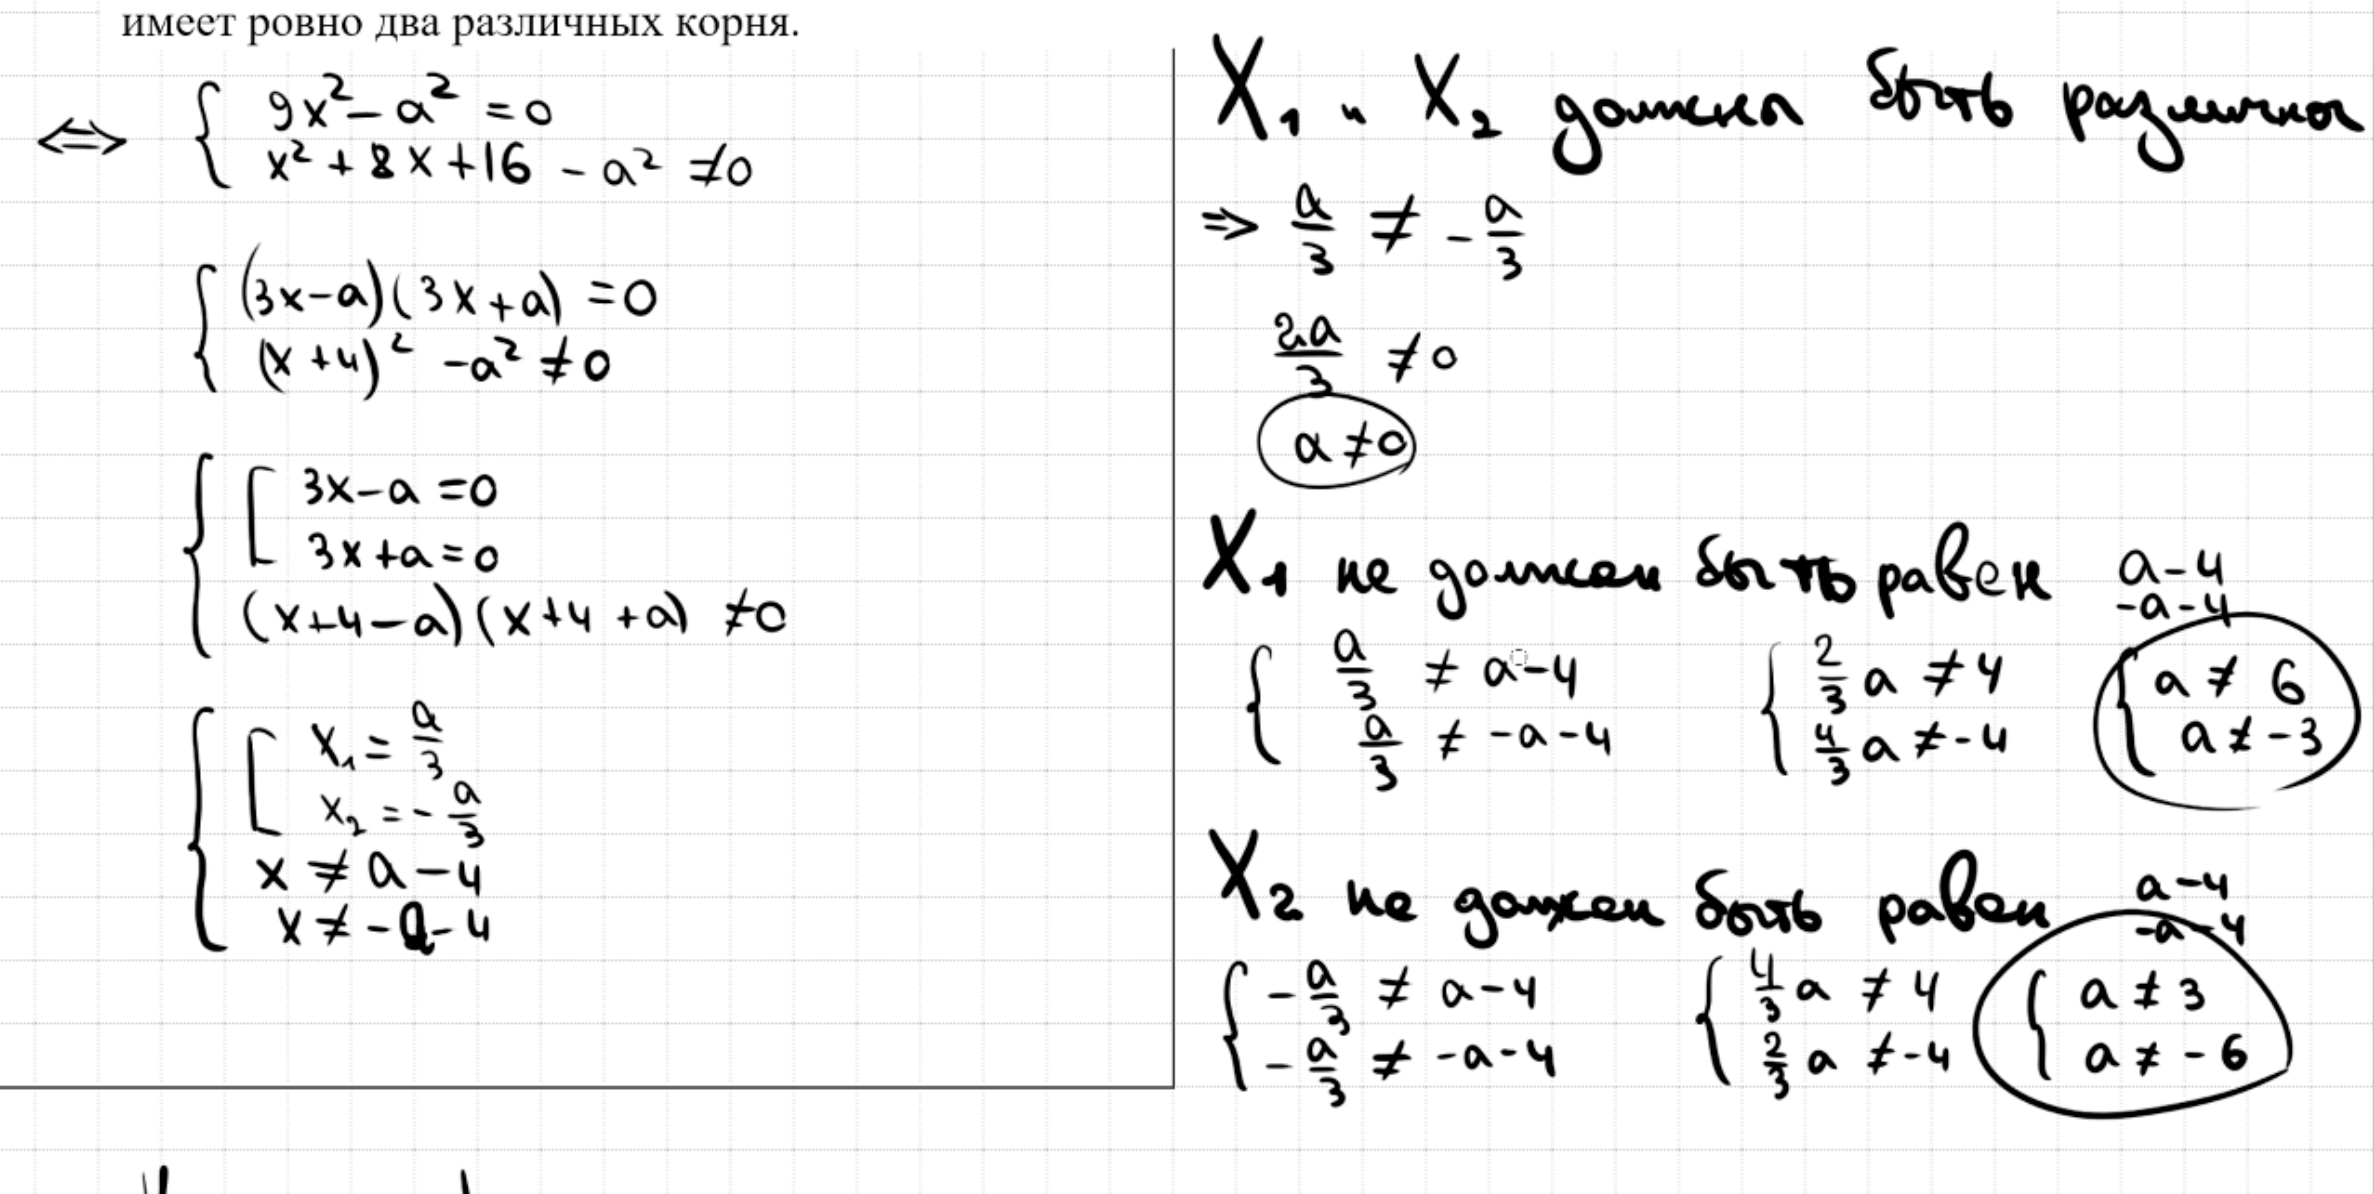 имеет ровно два различных корня.
⇔ { 9x² − a² = 0
x² + 8x + 16 − a² ≠ 0
{ (3x−a)(3x+a) = 0
(x+4)² − a² ≠ 0
{ [ 3x−a = 0
3x+a = 0
(x+4−a)(x+4+a) ≠ 0
{ [ x₁ = a/3
x₂ = −a/3
x ≠ a−4
x ≠ −a−4
X₁ и X₂ должны быть различны
⇒ a/3 ≠ −a/3
2a/3 ≠ 0
a ≠ 0
X₁ не должен быть равен a−4
−a−4
{ a/3 ≠ a−4 { 2/3 a ≠ 4 { a ≠ 6
a/3 ≠ −a−4 4/3 a ≠ −4 a ≠ −3
X₂ не должен быть равен a−4
−a−4
{ −a/3 ≠ a−4 { 4/3 a ≠ 4 { a ≠ 3
−a/3 ≠ −a−4 2/3 a ≠ −4 a ≠ −6